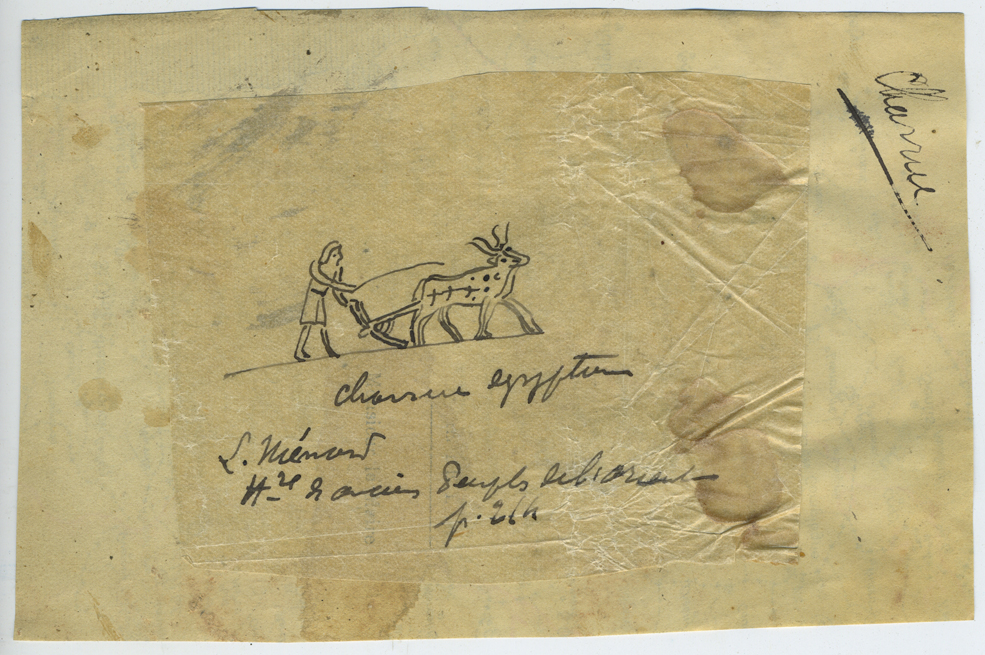 Charrue
charrue egyptien
L. Ménard
Hre d anciens Peuples de l'orient
p.